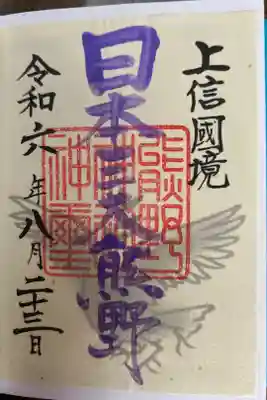 上信國境
日本三大熊野
令和六年八月二十三日
熊野
神璽